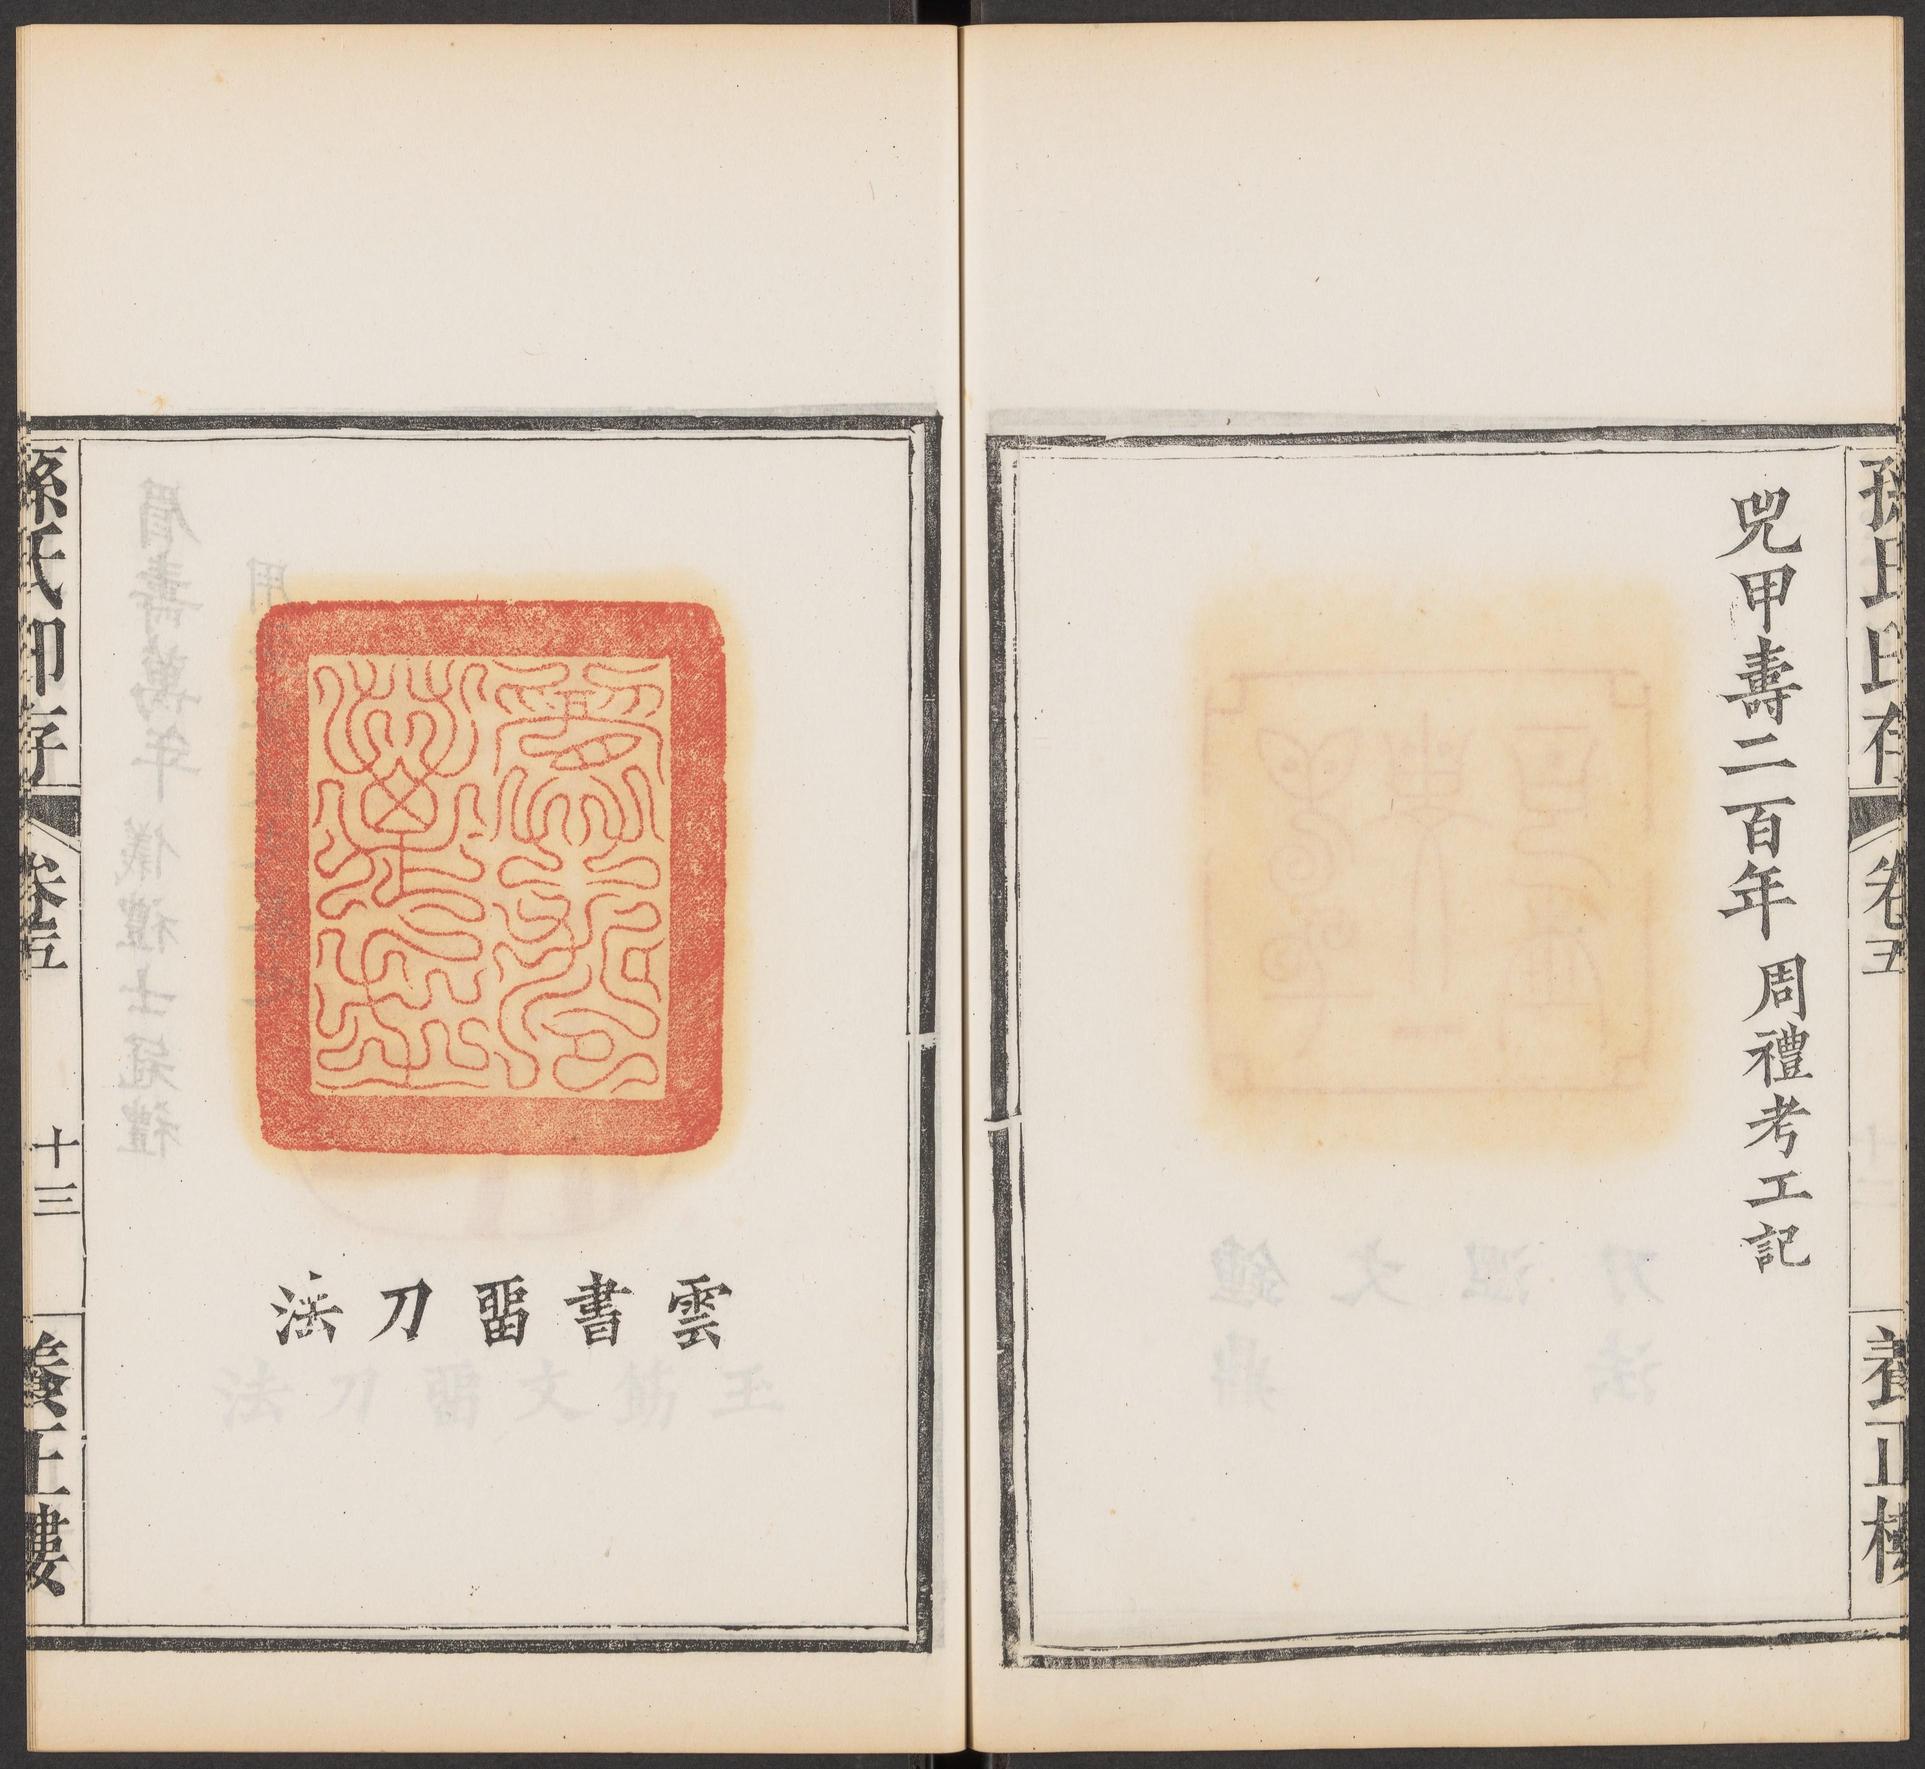 孫氏印存
卷五
養正樓
兕甲壽二百年 周禮考工記
雲書畱刀法
孫氏印存
卷五
十三
養正樓